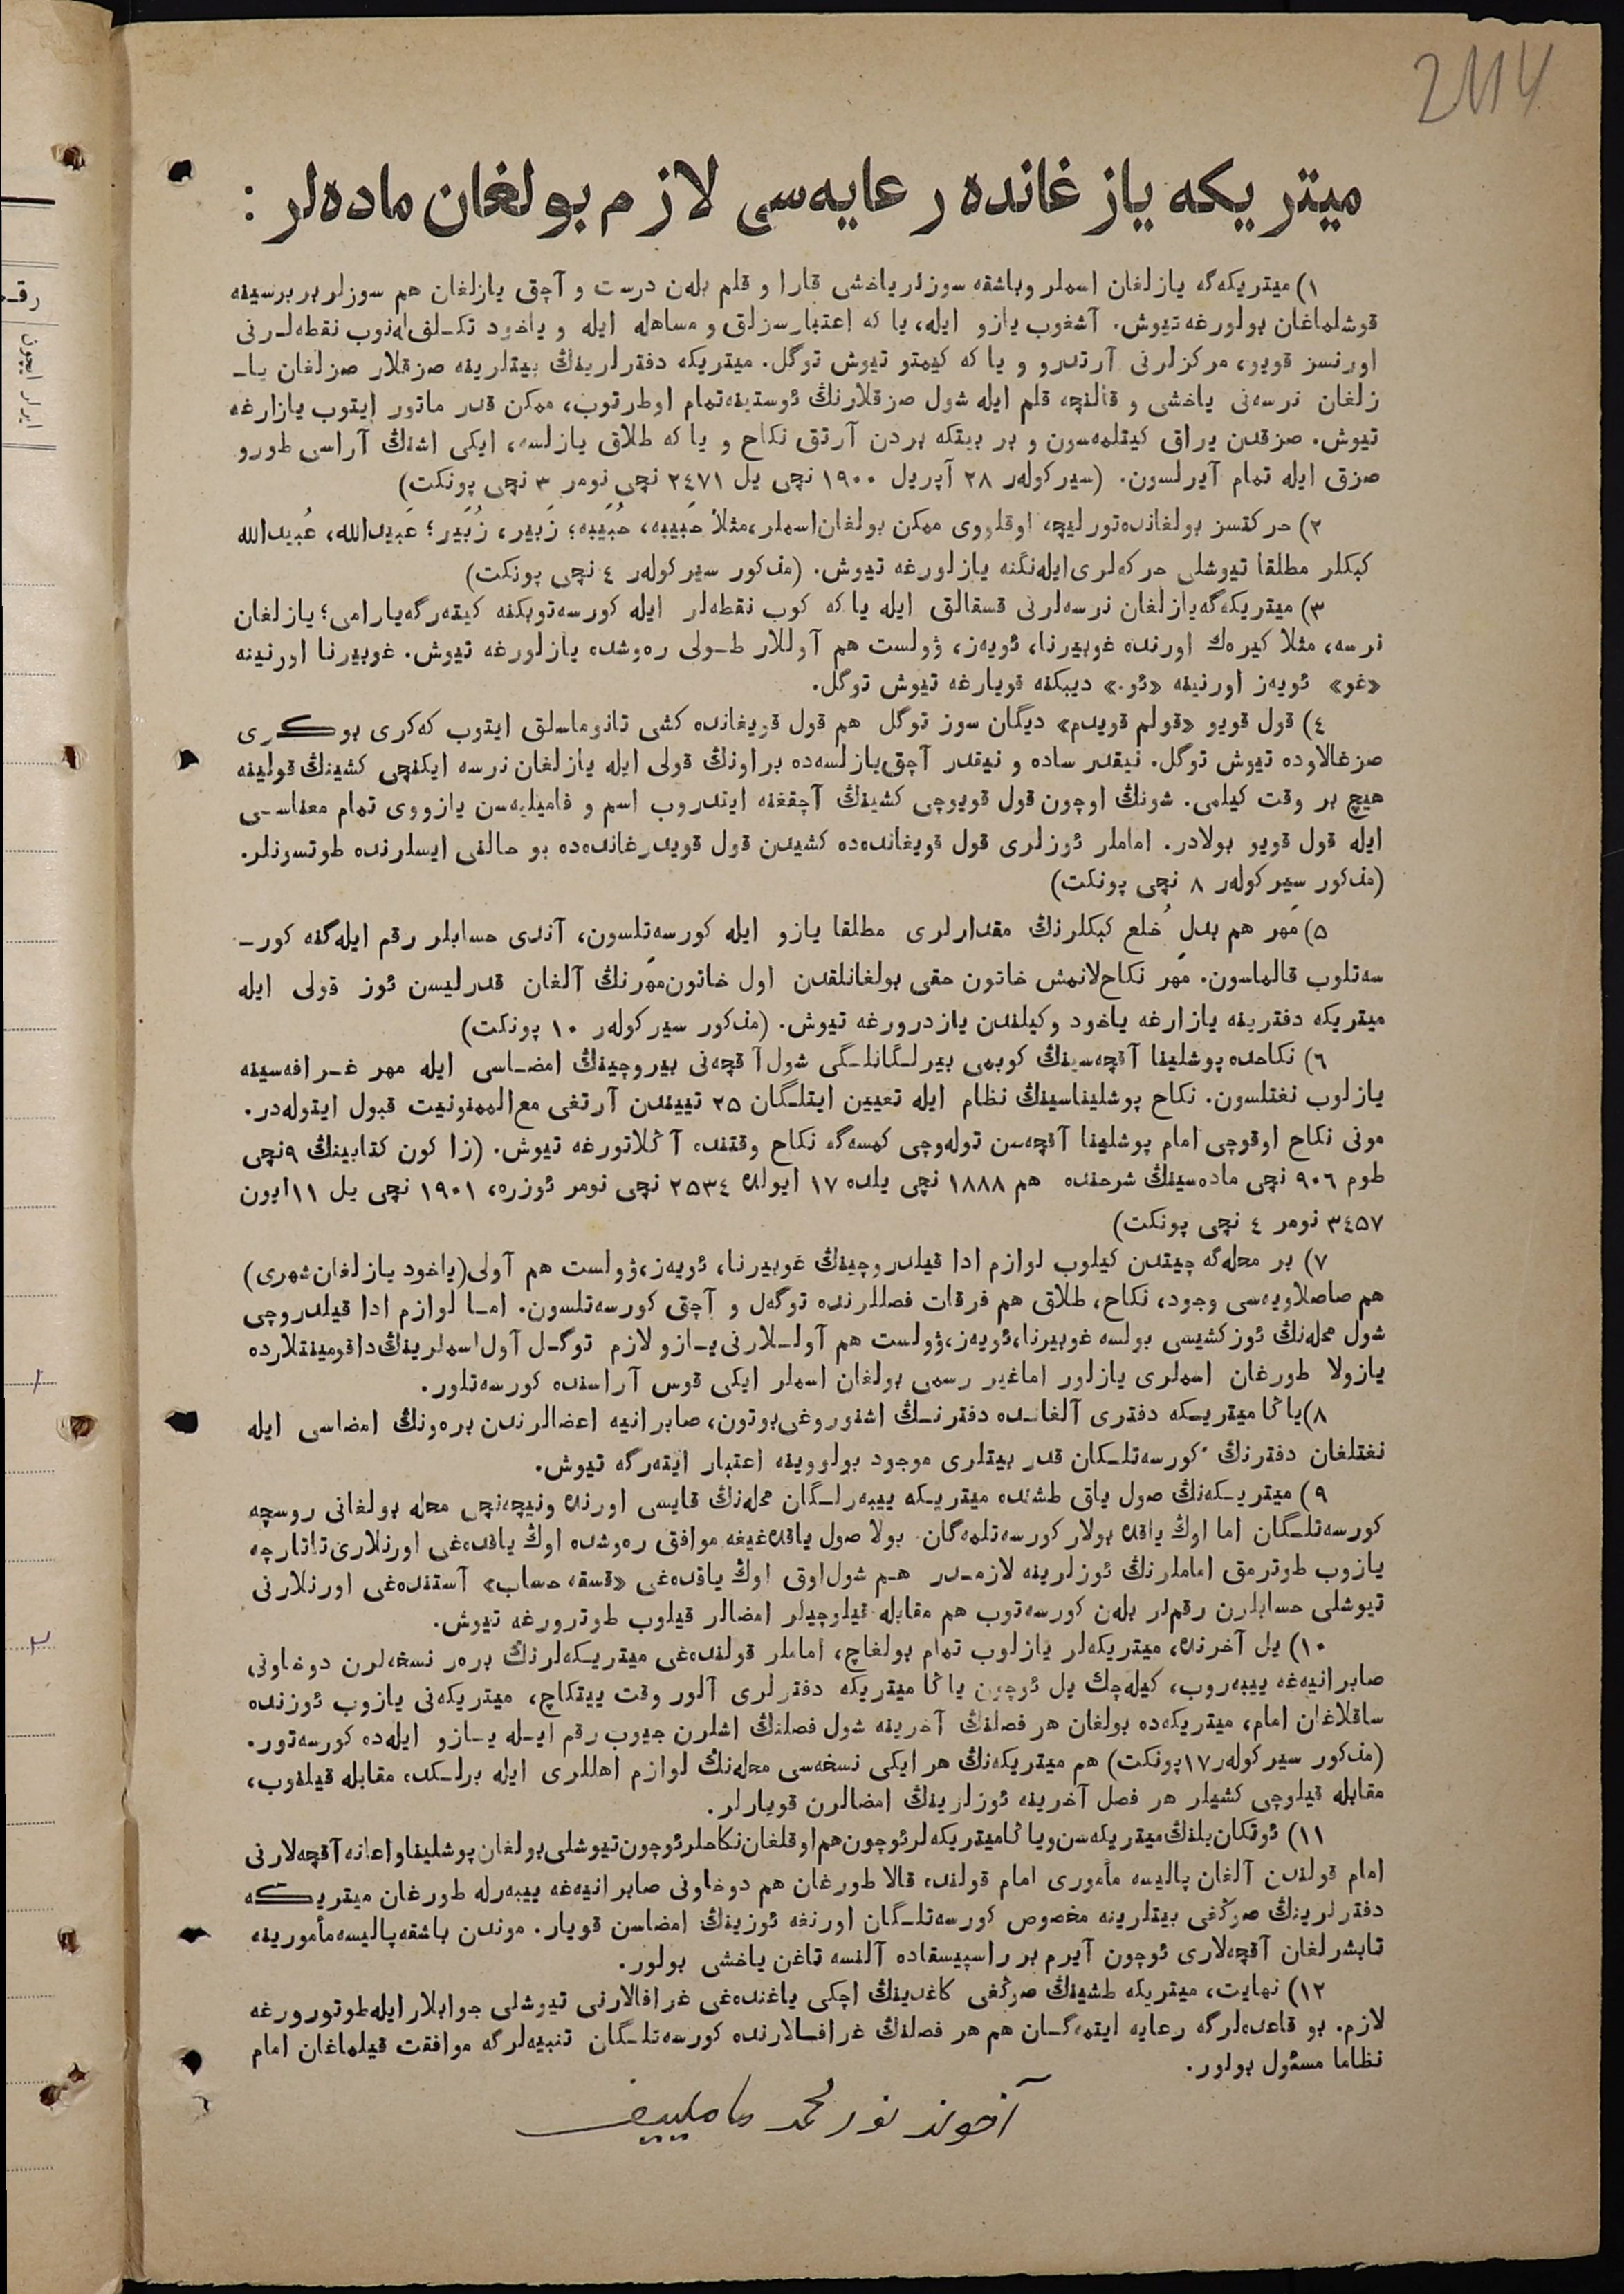 2114
میتریكه یازغانده رعایه‌سی لازم بولغان ماده‌لر :
١) میتریكه‌گه یازلغان اسملر وباشقه سوزلر یاخشی قارا و قلم بله‌ن درست و آچق یازلغان هم سوزلر بربرسینه
قوشلماغان بولورغه تیوش. آشغوب یازو ایله، یا كه اعتبارسزلق و مساهله ایله و یاخود تكـلف‌له‌نوب نقطه‌لـرنی
اورنسز قویو، مركزلرنی آرتدرو و یا كه كیمتو تیوش توگل. میتریكه دفترلرینڭ بیتلرینه صزقلار صزلغان یاـ
زلغان نرسه‌نی یاخشی و قالنچه قلم ایله شول صزقلارنڭ ئوستینه‌تمام اوطرتوب، ممكن قدر ماتور ایتوب یازارغه
تیوش. صزقدن یراق كیتلمه‌سون و بر بیتكه بردن آرتق نكاح و یا كه طلاق یازلسه، ایكی اشنڭ آراسی طورو
صزق ایله تمام آیرلسون. (سیركوله‌ر ٢٨ آپریل ١٩٠٠ نچی یل ٢٤٧١ نچی نومر ٣ نچی پونكت)
٢) حركتسز بولغانده‌تورلیچه اوقلووی ممكن بولغان‌اسملر،مثلاً حَبیبه، حُبَیبه؛ زَبیر، زُبَیر؛ عَبیدالله، عُبیدالله
كبكلر مطلقا تیوشلی حركه‌لری‌ایله‌نگنه یازلورغه تیوش. (مذكور سیركوله‌ر ٤ نچی پونكت)
٣) میتریكه‌گه‌یازلغان نرسه‌لرنی قسقالق ایله یا كه كوب نقطه‌لر ایله كورسه‌توبكنه كیته‌رگه‌یارامی؛ یازلغان
نرسه، مثلا كیره‌ك اورنده غوبیرنا، ئویه‌ز، ۋولست هم آوللار طـولی ره‌وشده یازلورغه تیوش. غوبیرنا اورنینه
«غو» ئویه‌ز اورنینه «ئو.» دیبكنه قویارغه تیوش توگل.
٤) قول قویو «قولم قویدم» دیگان سوز توگل هم قول قویغانده كشی تانوماسلق ایتوب كه‌كری بوكـری
صزغالاوده تیوش توگل. نیقدر ساده و نیقدر آچق‌یازلسه‌ده براونڭ قولی ایله یازلغان نرسه ایكنچی كشینڭ قولینه
هیچ بر وقت كیلمی. شونڭ اوچون قول قویوچی كشینڭ آچقغنه ایتدروب اسم و فامیلیه‌سن یازووی تمام معناسـی
ایله قول قویو بولادر. اماملر ئوزلری قول قویغانده‌ده كشیدن قول قویدرغانده‌ده بو حالنی ایسلرنده طوتسونلر.
(مذكور سیركوله‌ر ٨ نچی پونكت)
٥) مَهر هم بدلِ خُلع كبكلرنڭ مقدارلری مطلقا یازو ایله كورسه‌تلسون، آندی حسابلر رقم ایله‌گنه كورـ
سه‌تلوب قالماسون. مَهر نكاح‌لانمش خاتون حقی بولغانلقدن اول خاتون‌مَهرنڭ آلغان قدرلیسن ئوز قولی ایله
میتریكه دفترینه یازارغه یاخود وكیلندن یازدرورغه تیوش. (مذكور سیركوله‌ر ١٠ پونكت)
٦) نكاحده پوشلینا آقچه‌سینڭ كوبمی بیرلـگانلـگی شول آقچه‌نی بیروچینڭ امضـاسی ایله مهر غـرافه‌سینه
یازلوب نغتلسون. نكاح پوشلیناسینڭ نظام ایله تعیین ایتلـگان ٢٥ تییندن آرتغی مع‌الممنونیت قبول ایتوله‌در.
مونی نكاح اوقوچی امام پوشلینا آقچه‌سن توله‌وچی كمسه‌گه نكاح وقتنده آڭلاتورغه تیوش. (زاكون كتابینڭ ٩نچی
طوم ٩٠٦ نچی ماده‌سینڭ شرحنده هم ١٨٨٨ نچی یلده ١٧ ایولده ٢٥٣٤ نچی نومر ئوزره، ١٩٠١ نچی یل ١١ایون
٣٤٥٧ نومر ٤ نچی پونكت)
٧) بر محله‌گه چیتدن كیلوب لوازم ادا قیلدروچینڭ غوبیرنا، ئویه‌ز،ۋولست هم آولی(یاخود یازلغان شهری)
هم صاصلاویه‌سی وجود، نكاح، طلاق هم فرقات فصللرنده توگه‌ل و آچق كورسه‌تلسون. امـا لوازم ادا قیلدروچی
شول محله‌نڭ ئوز كشیسی بولسه غوبیرنا،ئویه‌ز،ۋولست هم آولـلارنی‌یـازو لازم توگـل آول‌اسملرینڭ‌داقومینتلارده
یازولا طورغان اسملری یازلور اماغیر رسمی بولغان اسملر ایكی قوس آراسنده كورسه‌تلور.
٨) یاڭا میتریـكه دفتری آلغانـده دفترنـڭ اشنوروغی‌بوتون، صابرانیه اعضالرندن بره‌ونڭ امضاسی ایله
نغتلغان دفترنڭ كورسه‌تلـكان قدر بیتلری موجود بولووینه اعتبار ایته‌رگه تیوش.
٩) میتریـكه‌نڭ صول یاق طشنده میتریـكه ییبه‌رلـگان محله‌نڭ قایسی اورنده ونیچه‌نچی محله بولغانی روسچه
كورسه‌تلـگان اما اوڭ یاقده بولار كورسه‌تلمه‌گان. بولا صول یاقده‌غیغه موافق ره‌وشده اوڭ یاقده‌غی اورنلاری‌تاتارچه
یازوب طوترمق اماملرنڭ ئوزلرینه لازمـدر هـم شول‌اوق اوڭ یاقده‌غی «قسقه حساب» آستنده‌غی اورنلارنی
تیوشلی حسابلرن رقم‌لر بله‌ن كورسه‌توب هم مقابله قیلوچیلر امضالر قیلوب طوترورغه تیوش.
١٠) یل آخرنده، میتریكه‌لر یازلوب تمام بولغاچ، اماملر قولنده‌غی میتریـكه‌لرنڭ بره‌ر نسخه‌لرن دوخاونی
صابرانیه‌غه ییبه‌روب، كیله‌چك یل ئوچون یاڭا میتریكه دفترلری آلور وقت ییتكاچ، میتریكه‌نی یازوب ئوزنده
ساقلاغان امام، میتریكه‌ده بولغان هر فصلنڭ آخرینه شول فصلنڭ اشلرن جیوب رقم ایـله یـازو ایله‌ده كورسه‌تور.
(مذكور سیركوله‌ر١٧پونكت) هم میتریكه‌نڭ هر ایكی نسخه‌سی محله‌نڭ لوازم اهللری ایله برلـكده مقابله قیلنوب،
مقابله قیلوچی كشیلر هر فصل آخرینه ئوزلرینڭ امضالرن قویارلر.
١١) ئوتكان‌یلنڭ‌میتریكه‌سن‌ویاڭامیتریكه‌لرئوچون‌هم‌اوقلغان‌نكاحلرئوچون‌تیوشلی‌بولغان‌پوشلیناواعانه‌آقچه‌لارنی
امام قولندن آلغان پالیسه مأموری امام قولنده قالا طورغان هم دوخاونی صابرانیه‌غه ییبه‌رله طورغان میتریـكه
دفترلرینڭ صوڭغی بیتلرینه مخصوص كورسه‌تلـگان اورنغه ئوزینڭ امضاسن قویار. موندن باشقه‌پالیسه‌مأمورینه
تابشرلغان آقچه‌لاری ئوچون آیرم بر راسپیسقاده آلنسه تاغن یاخشی بولور.
١٢) نهایت، میتریكه طشینڭ صوڭغی كاغدینڭ اچكی یاغنده‌غی غرافالارنی تیوشلی جوابلارایله‌طوتورورغه
لازم. بو قاعده‌لرگه رعایه ایتمه‌گـان هم هر فصلنڭ غرافـالارنده كورسه‌تلـگان تنبیه‌لرگه موافقت قیلماغان امام
نظاما مسئول بولور.
آخوند نور محمد ماملییف